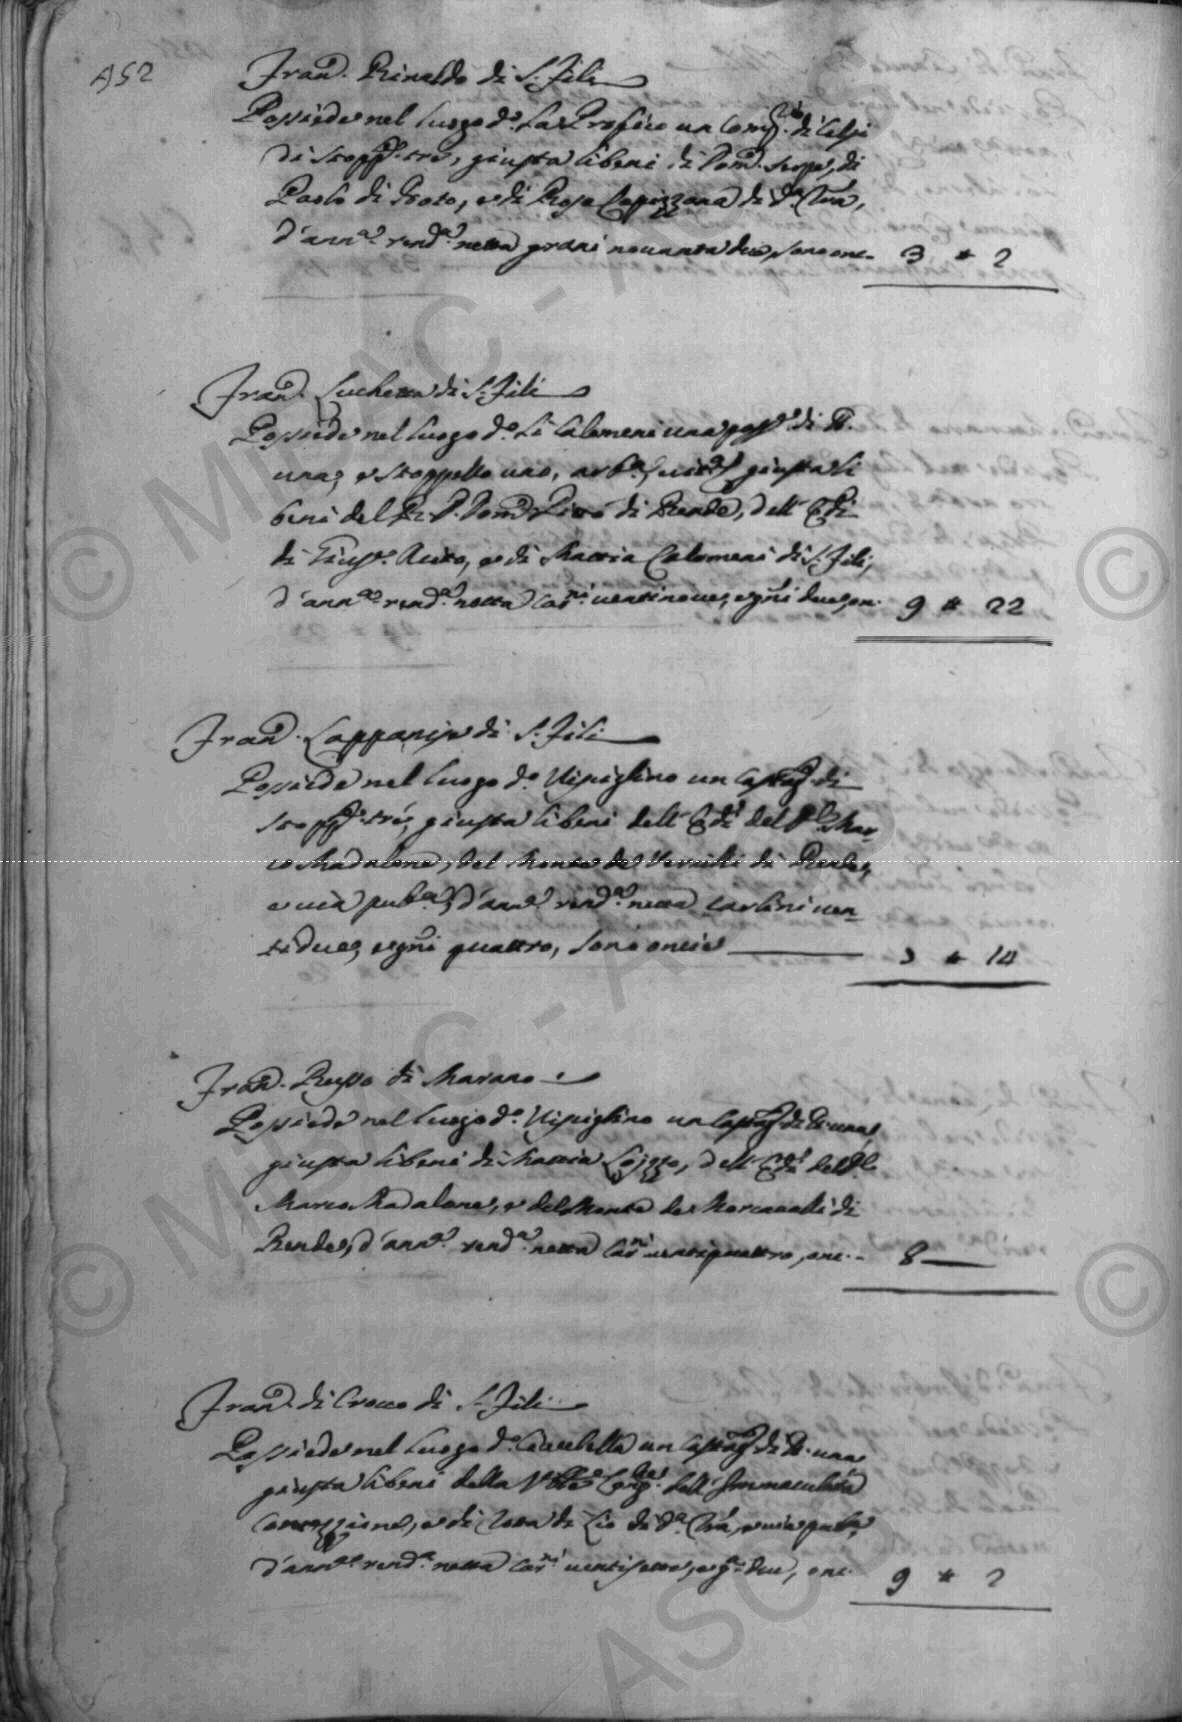 452
Fran.º Rinaldo di S. Fili
Possiede nel luogo d.º La Profico un Comp.º di Celsi
di stopp.ª tre, giusta li beni di Dom.º Serpe, di
Paolo di Gioto, e di Rosa Capizzana di d.ª Trâ,
d'ann.ª rend.ª netta grani novanta due, sono onc.
3 * 2
Fran.º Luchetta di S. Fili
Possiede nel luogo d.º Li Calomeni una poss.ne di
una, e stoppello uno, giusta li
beni del di Rende, dell' Eredi
di Gius.e Aiuto, e di Mattia Calomeni di S. Fili,
d'ann.ª rend.ª netta car.ni ventinove, e gni due, on.
9 * 22
Fran.º Cappanijo di S. Fili
Possiede nel luogo d.º Vipiglino un Castag.to di
stopp.ª tré, giusta li beni dell' Eredi del Mar
co Madalone, del Monte de di Rende,
e via pub.ca, d'ann.ª rend.ª netta carlini ven
tidue, e gni quattro, sono oncie
14
Fran.º Russo di Marano
Possiede nel luogo d.º Vipiglino un Castag.to di una,
giusta li beni di Mattia Loizzo, dell' Eredi del
Marco Madalone, e del Monte de Morcavalli di
Rende, d'ann.ª rend.ª netta Car.ni ventiquattro, onc.
8
Fran.º di Crocco di S. Fili
Possiede nel luogo d.º un Castag.to di una
giusta li beni della Cong.ne dell' Immaculata
Concezzione, e di di Cio di d.ª Trâ, e via pub.ca
d'ann.ª rend.ª netta car.ni ventisette, e g.ª due, onc.
9 * 2
© MiBAC - ASC
© MiBAC - ASC
©
©
ASC